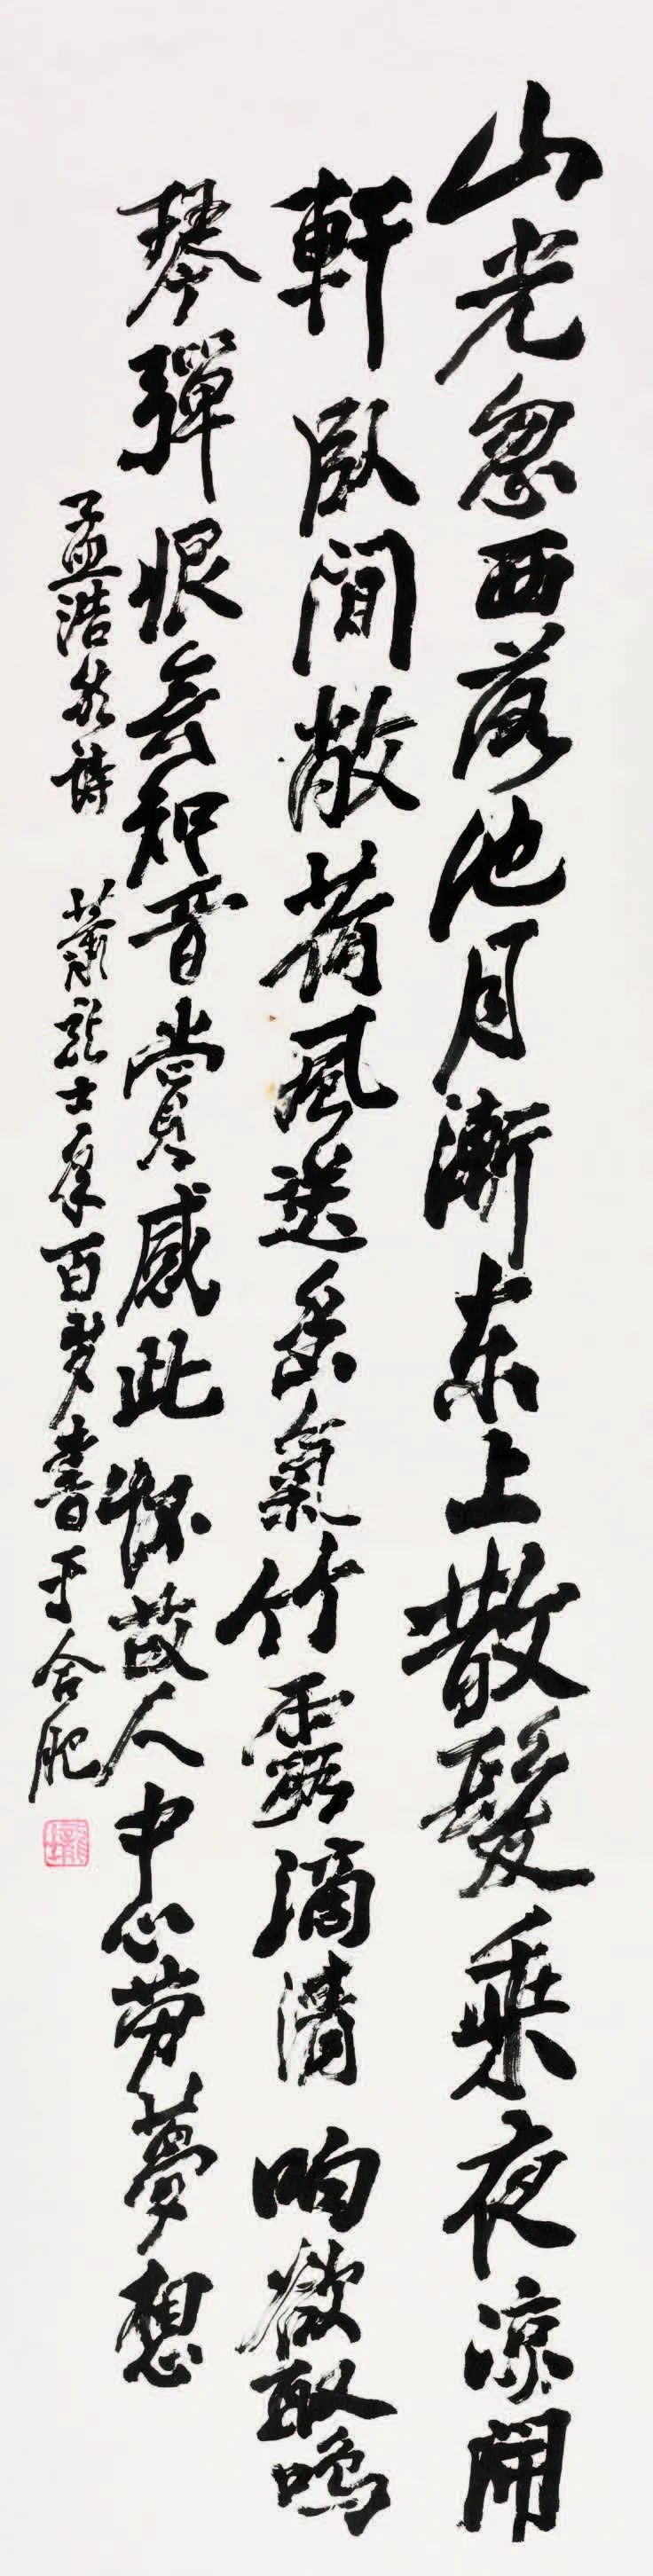 山光忽西落池月漸东上散髮乘夜凉開
軒臥閒敞荷風送香氣竹露滴清响欲取鳴
琴彈恨無知音賞感此懷故人中心勞夢想
孟浩然詩 蕭龍士年百岁書于合肥